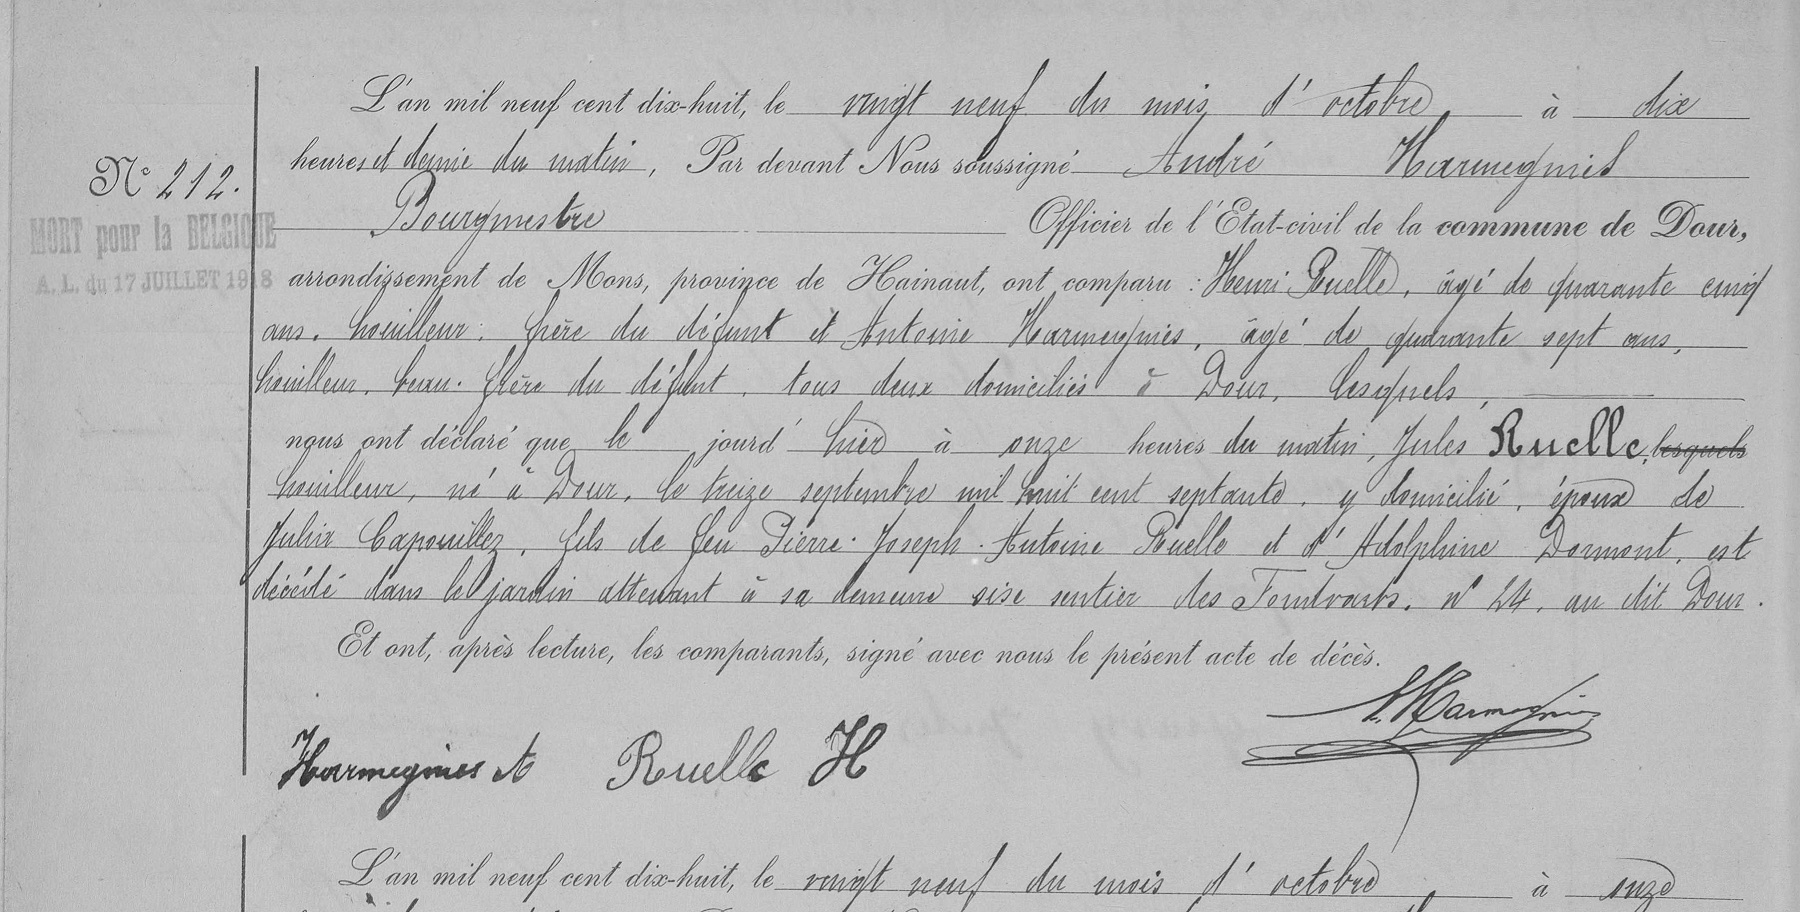 L'an mil neuf cent dix-huit, le vingt neuf du mois d'octobre à dix
heures et demie du matin, Par devant Nous soussigné André Harmegnies
N° 212.
Bourgmestre Officier de l'Etat-civil de la commune de Dour,
MORT pour la BELGIQUE
A. L. du 17 JUILLET 1918
arrondissement de Mons, province de Hainaut, ont comparu : Henri Ruelle, âgé de quarante cinq
ans, houilleur, frère du défunt et Antoine Harmegnies, âgé de quarante sept ans,
houilleur, beau-frère du défunt, tous deux domiciliés à Dour, lesquels,
nous ont déclaré que le jourd'hier à onze heures du matin, Jules Ruelle, lesquels
houilleur, né à Dour, le treize septembre mil huit cent septante, y domicilié, époux de
Julia Capouillez, fils de feu Pierre-Joseph-Antoine Ruelle et d'Adolphine Dormont, est
décédé dans le jardin attenant à sa demeure sise sentier des n° 24, au dit Dour.
Et ont, après lecture, les comparants, signé avec nous le présent acte de décès.
A. Harmegnies
Harmegnies A Ruelle H
L'an mil neuf cent dix-huit, le vingt neuf du mois d'octobre à onze